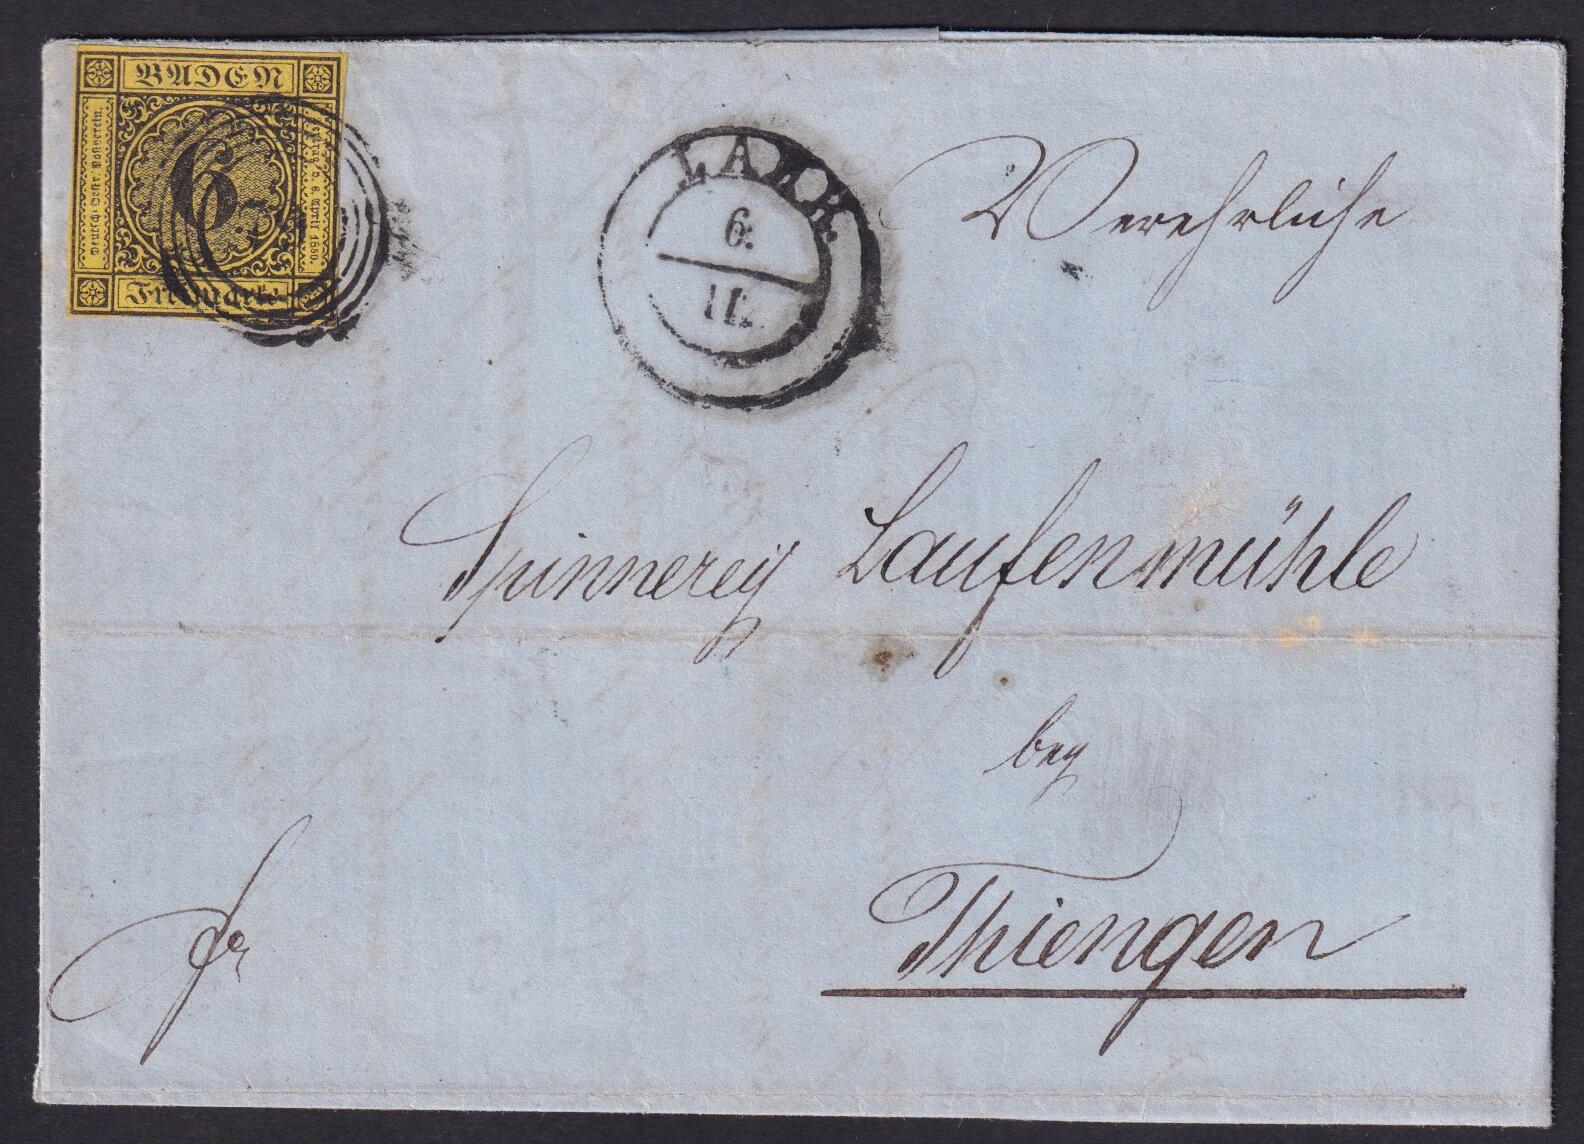 BADEN
Deutsch-Oestr. Postverein.
6
Vertrag v. 6. April 1850.
Freimarke
LAHR.
6.
11.
Verehrliche
Spinnerey Laufenmühle
bey
Thiengen